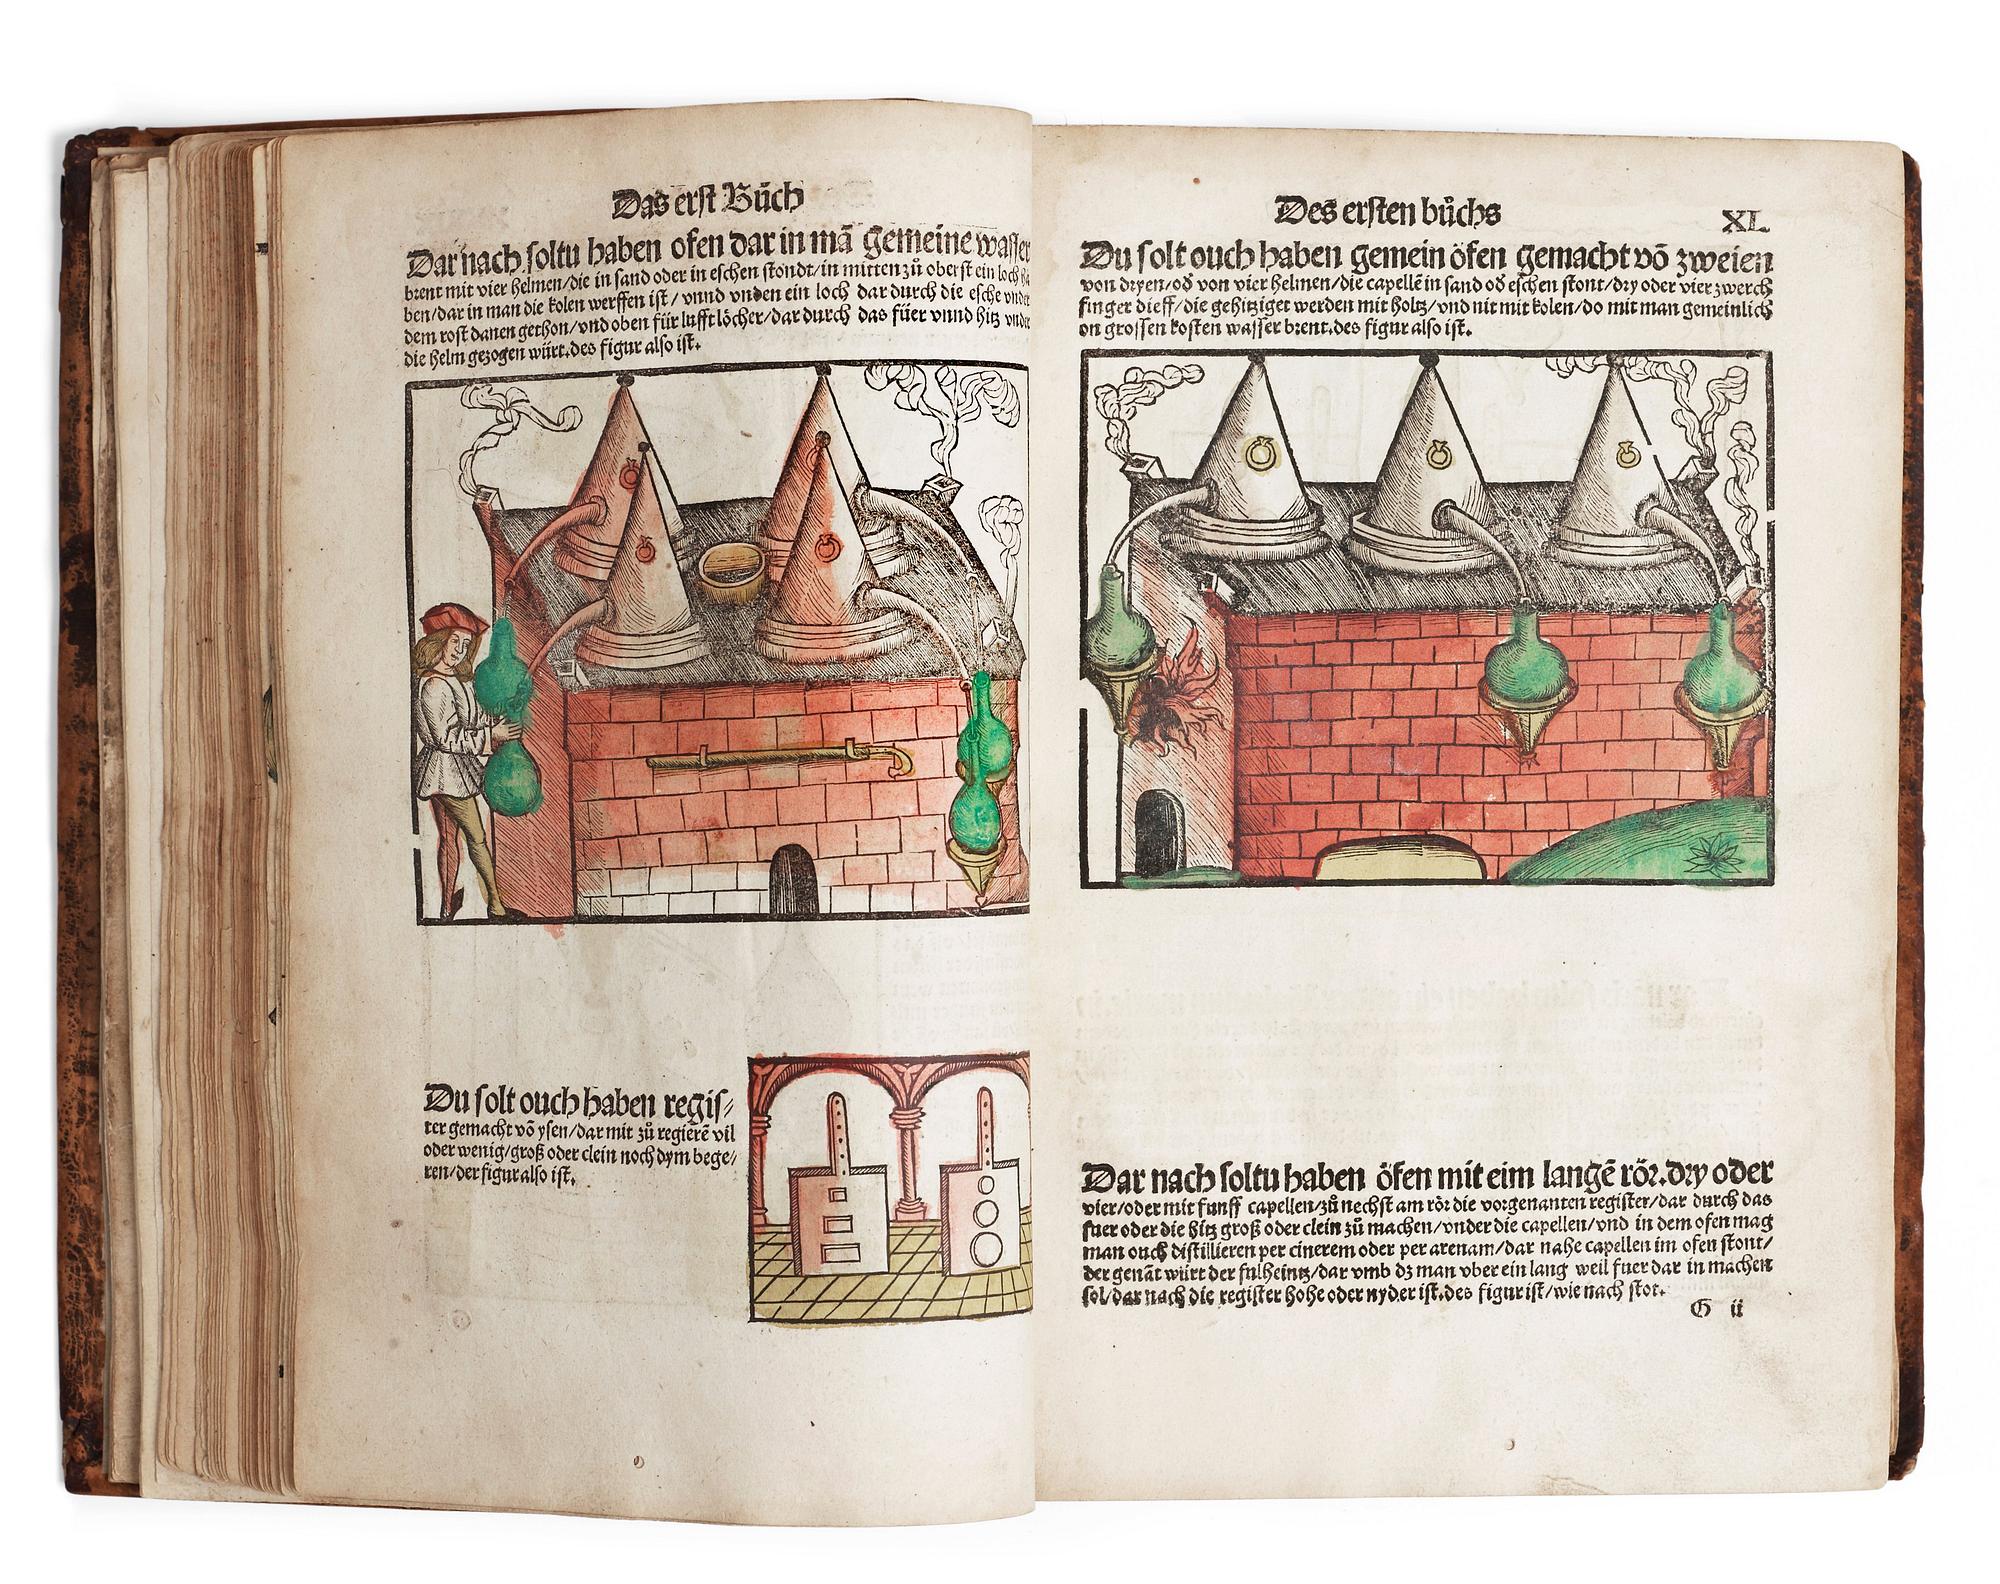 Das erst Bůch
Dar nach soltu haben ofen dar in mā gemeine wasser
brent mit vier helmen/die in sand oder in eschen stondt/in mitten zů oberst ein loch ha
ben/dar in man die kolen werffen ist/vnnd vnden ein loch dar durch die esche vnder
dem rost danen gethon/vnd oben für lufft löcher/dar durch das füer vnnd hitz vnder
die helm gezogen würt.des figur also ist.
Du solt ouch haben regis⸗
ter gemacht vō ysen/dar mit zů regierē vil
oder wenig/groß oder clein noch dym bege⸗
ren/der figur also ist.
Des ersten bůchs
XL.
Du solt ouch haben gemein öfen gemacht vō zweien
von dryen/oď von vier helmen/die capellē in sand oď eschen stont/dry oder vier zwerch
finger dieff/die gehitziget werden mit holtz/vnd nit mit kolen/do mit man gemeinlich
on grossen kosten wasser brent.des figur also ist.
Dar nach soltu haben öfen mit eim langē rör.dry oder
vier/oder mit funff capellen/zů nechst am rör die vorgenanten register/dar durch das
fuer oder die hitz groß oder clein zů machen/vnder die capellen/vnd in dem ofen mag
man ouch distillieren per cinerem oder per arenam/dar nahe capellen im ofen stont/
der genāt würt der fulheintz/dar vmb dz man vber ein lang weil fuer dar in machen
sol/dar nach die register hohe oder nyder ist.des figur ist/wie nach stot.
G ij